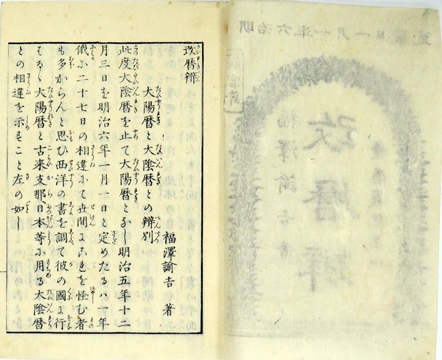 明治六年一月一日
改暦辨
福澤諭吉著
改暦辨
福澤諭吉 著
大陽暦と大陰暦との辨別
此度大陰暦を止て大陽暦となし明治五年十二
月三日を明治六年一月一日と定めたるハ一年
俄に二十七日の相違にて世間にこれを怪む者
も多からんと思ひ西洋の書を調て彼の國に行
はるゝ大陽暦と古來支那日本等に用る大陰暦
との相違を示すこと左の如し